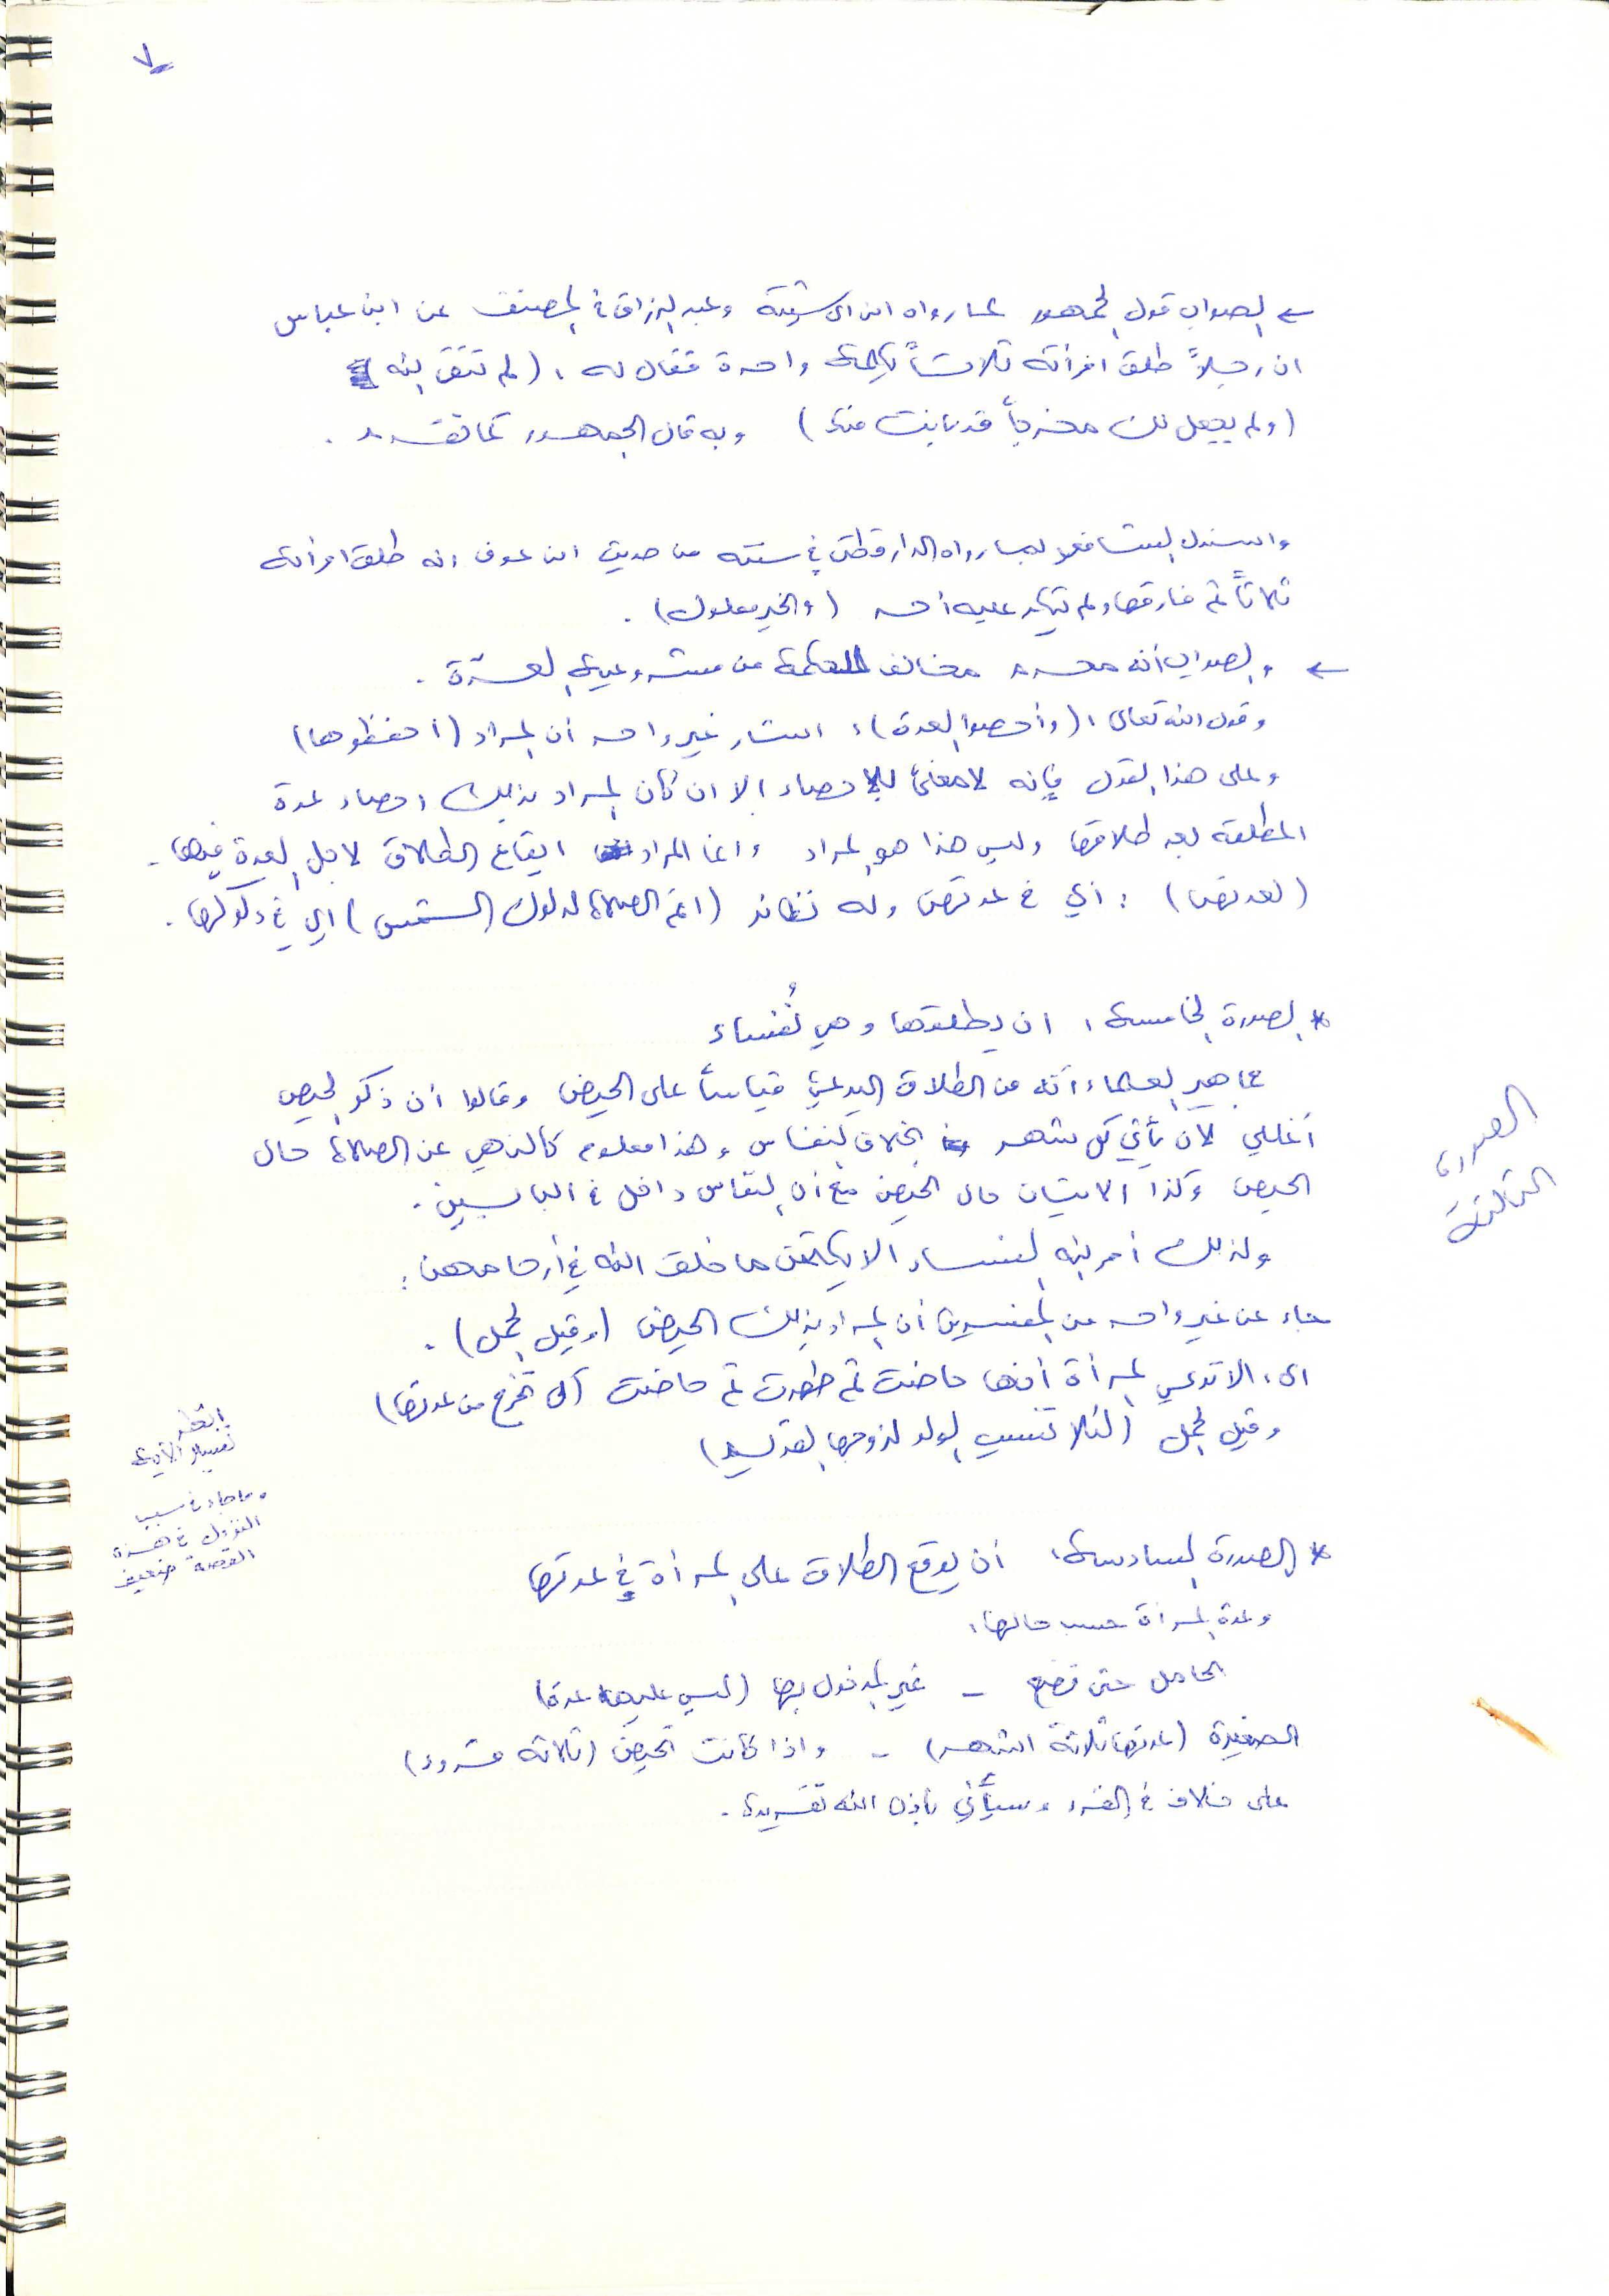 ٧
← الصواب قول الجمهور لما رواه ابن ابي شيبة وعبد الرزاق في المصنف عن ابن عباس
ان رجلاً طلق امرأته ثلاثاً بكلمة واحدة فقال له : (لم تتق الله
(ولم يجعل لك مخرجاً قد بانت منك) وبه قال الجمهور كما تقدم .
واستدل الشافعي بما رواه الدارقطني في سننه من حديث ابن عوف انه طلق امرأته
ثلاثاً ثم فارقها ولم ينكر عليه أحد (والخبر معلول) .
← والصواب أنه محرم مخالف للحكمة من مشروعية العدة .
وقول الله تعالى : (وأحصوا العدة) : اشار غير واحد أن المراد (احفظوها)
وعلى هذا القول فإنه لا معنىً للإحصاء إلا ان كان المراد بذلك احصاء عدة
المطلقة بعد طلاقها وليس هذا هو المراد وانما المراد ايقاع الطلاق لاجل العدة فيها .
(لعدتهن) : أي في عدتهن وله نظائر (اقم الصلاة لدلوك الشمس) اي في دلوكها .
* الصورة الخامسة : ان يطلقها وهي نُفساء
جماهير العلماء أنه من الطلاق البدعي قياساً على الحيض وقالوا أن ذكر الحيض
أغلبي لان يأتي كل شهر بخلاف النفاس وهذا معلوم كالنهي عن الصلاة حال
الحيض وكذا الاتيان حال الحيض مع أن النفاس داخل في البابين .
ولذلك أمر الله النساء ألا يكتمن ما خلق الله في أرحامهن :
جاء عن غير واحد من المفسرين أن المراد بذلك الحيض (وقيل الحمل) .
اي : الا تدعي المرأة أنها حاضت ثم طهرت ثم حاضت (كي تخرج من عدتها)
وقيل الحمل (لئلا تنسب الولد لزوجها
* الصورة السادسة : أن يوقع الطلاق على المرأة في عدتها
وعدة المرأة حسب حالها :
الحامل حتى تضع - غير المدخول بها (ليس عليها عدة)
الصغيرة (عدتها ثلاثة اشهر) - واذا كانت تحيض (ثلاثة قروء)
على خلاف في القرء وسيأتي بإذن الله تقريره .
الصورة
الثالثة
انظر
تفسير الآية
وما جاء في سبب
النزول في هذه
القصة ضعيف